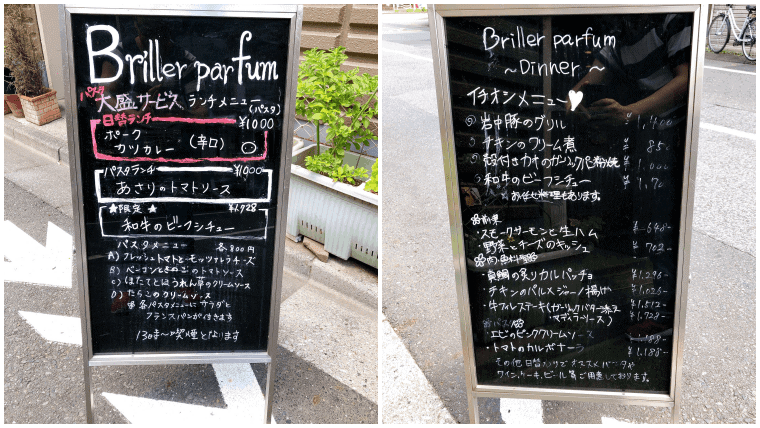 Briller parfum
パスタ
大盛サービス ランチメニュー(パスタ)
日替ランチ ¥1000
ポーク
カツカレー (辛口)
パスタランチ ¥1000
あさりのトマトソース
★限定★ ¥1,728
和牛のビーフシチュー
パスタメニュー 各800円
A) フレッシュトマトとモッツァレラチーズ
B) ベーコンときのこのトマトソース
C) ほたてとほうれん草のクリームソース
D) たらこのクリームソース
※各パスタメニューにサラダと
フランスパンが付きます
13:00~喫煙となります
Briller parfum
~Dinner~
イチオシメニュー♥
岩中豚のグリル ¥1,400
チキンのクリーム煮 ¥850
殻付きカキのガーリックパン粉焼 ¥1,000
和牛のビーフシチュー
お任せ料理もあります。
前菜
・スモークサーモンと生ハム ¥648-
野菜とチーズのキッシュ ¥702-
肉・魚料理
・真鯛の炙りカルパッチョ ¥1,296-
・チキンのパルメジャーノ揚げ ¥1,026-
・牛フィレステーキ(ガーリックバターソース ¥1,512-
・マデラソース) ¥1,728-
パスタ
・エビのピンククリームソース ¥1,188-
・トマトのカルボナーラ ¥1,188-
その他日替わりでオススメパスタや
ワイン、ケーキ、ビール等ご用意しております。